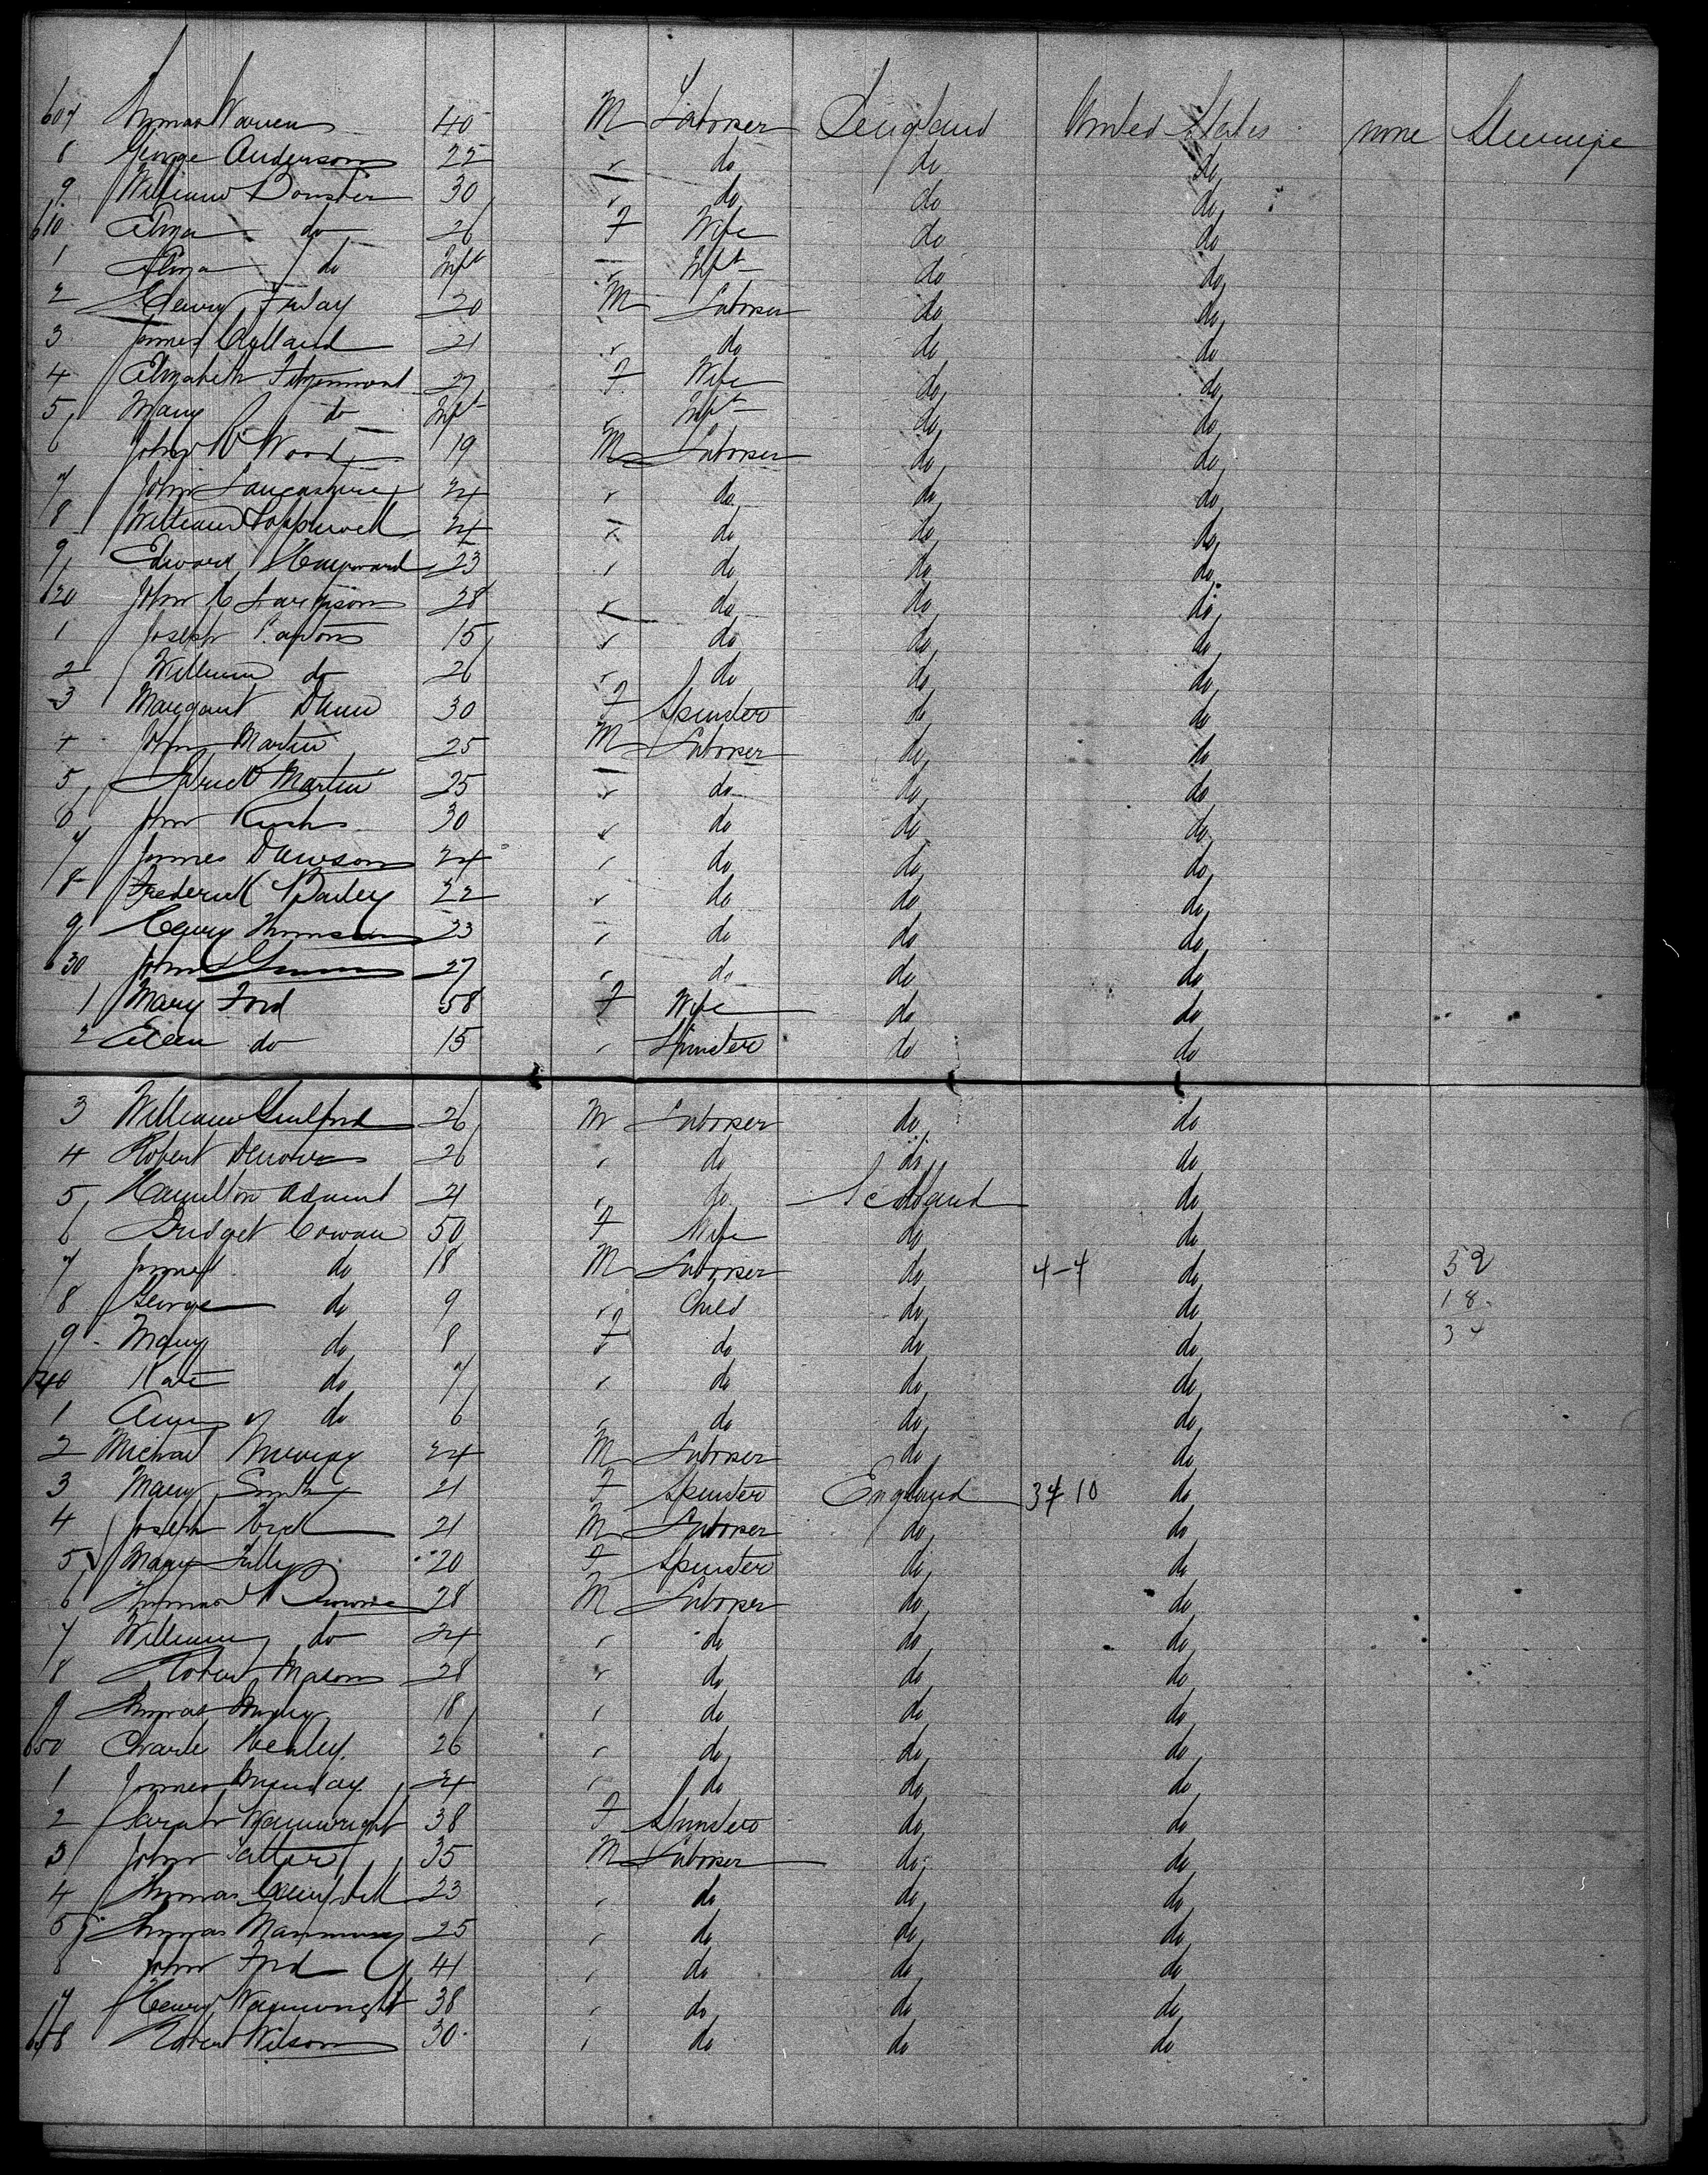 607 Thomas Warren 40 M Laborer England United States none Steerage
8 George Anderson 22 " do do do
9 William Dorster 30 " do do do
610 Eliza do 26 F Wife do do
1 Eliza do Inft " Inft do do
2 Henry Friday 20 M Laborer do do
3 James 21 " do do do
4 Elizabeth 27 F Wife do do
5 Mary do Inft " Inft do do
6 John W Wood 19 M Laborer do do
7 John Lancashire 24 " do do do
8 William 24 " do do do
9 Edward Hayward 23 " do do do
620 John 28 " do do do
1 Joseph 15 " do do do
2 William do 26 " do do do
3 Margaret Dunn 30 F Spinster do do
4 John Martin 25 M Laborer do do
5 Martin 25 " do do do
6 John Rush 30 " do do do
7 James Dawson 24 " do do do
8 Frederick Bailey 22 " do do do
9 Henry Thomson 23 " do do do
630 John 27 " do do do
1 Mary Ford 58 F Wife do do
2 Ellen do 15 " Spinster do do
3 William Guilford 26 M Laborer do do
4 Robert 26 " do do do
5 Hamilton 21 " do Scotland do
6 Bridget Cowan 50 F Wife do do
7 James do 18 M Laborer do 4-4 do 52
8 George do 9 " Child do do 18
9 Mary do 8 F do do do 34
640 Kate do 7 " do do do
1 do 6 " do do do
2 Michael 24 M Laborer do do
3 Mary Smith 21 F Spinster England 34 10 do
4 Joseph 21 M Laborer do do
5 Mary 20 F Spinster do do
6 Thomas 28 M Laborer do do
7 William do 24 " do do do
8 Robert Mason 28 " do do do
9 Thomas 18 " do do do
650 Charles 26 " do do do
1 James Munday 24 " do do do
2 Sarah Wainwright 38 F Spinster do do
3 John 35 M Laborer do do
4 Thomas Campbell 23 " do do do
5 Thomas 25 " do do do
John Ford 41 " do do do
7 Henry Wainwright 38 " do do do
658 Robert Wilson 30 " do do do